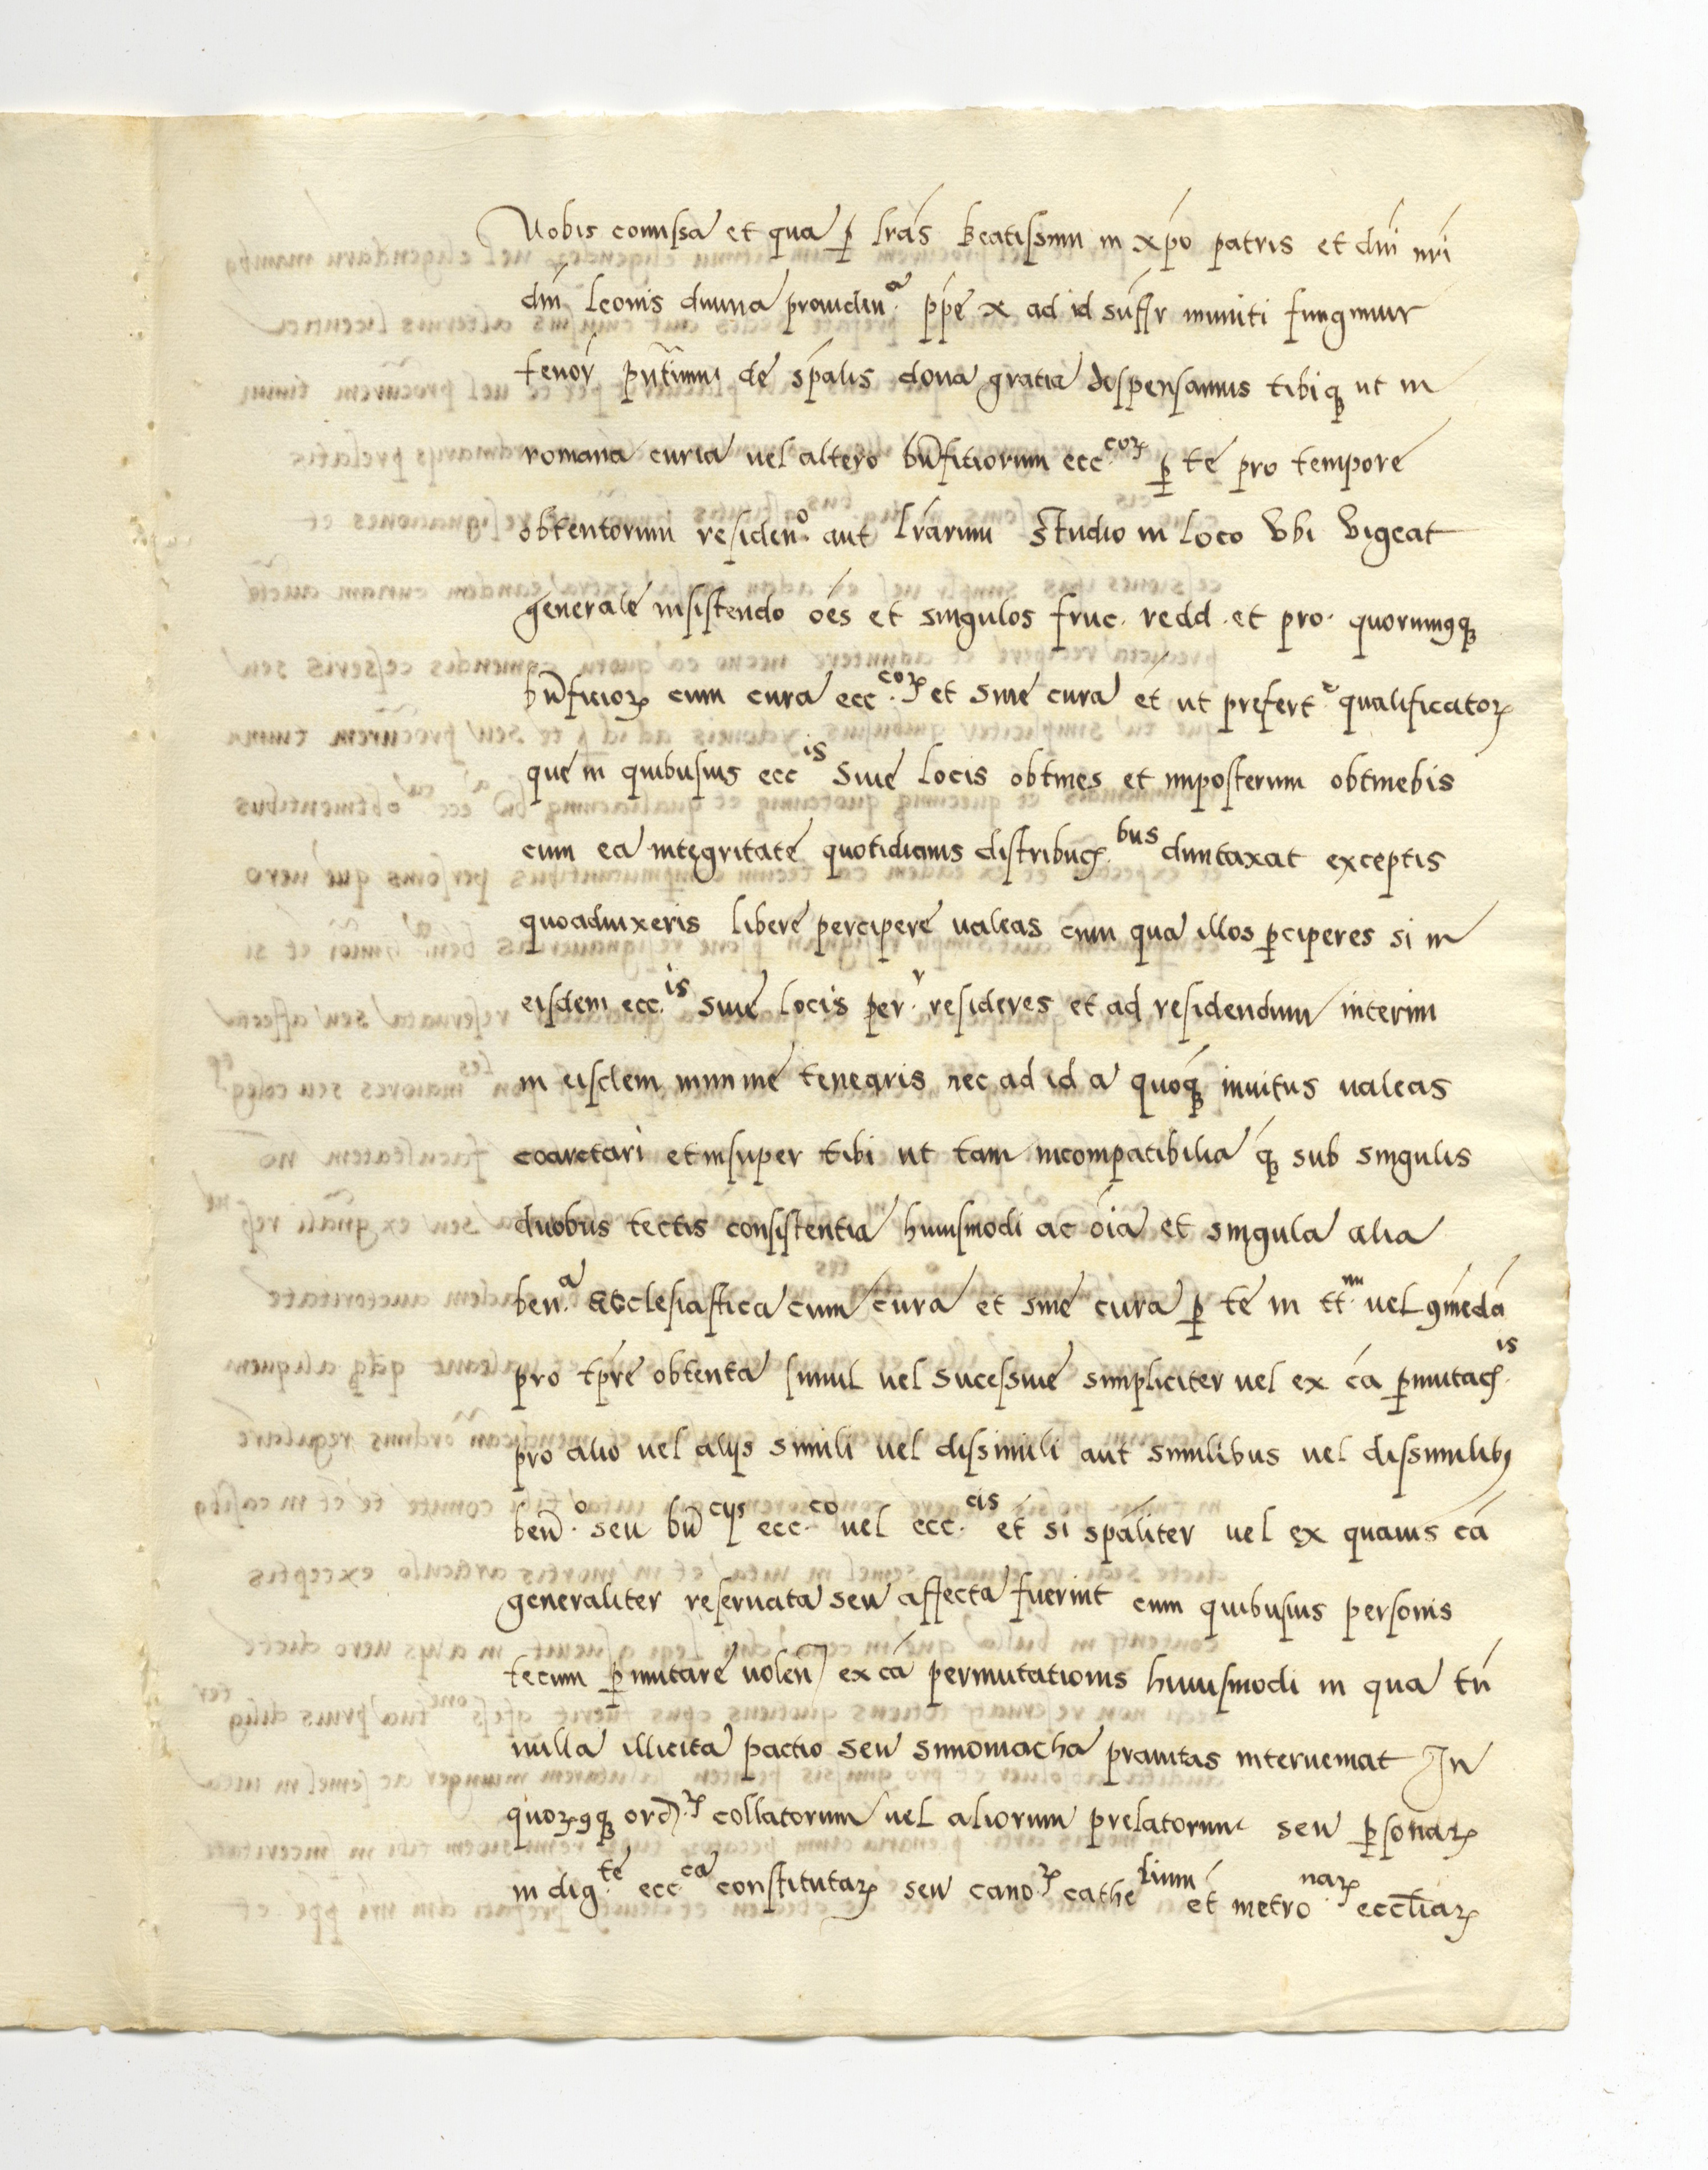 Vobis comissa et qua ꝑ lrãs beatissimi in xp̃o patris et dñi nr̃i
dñi Leonis diuina prouidenᵃ. pp̃e x ad id suffr muniti fungimur
tenor̃ pñtium de sp̃alis dona gratia dispensamus tibiqꝫ ut in
romana curia uel altero bñfitiorum ecc.ᶜᵒꝝ ꝑ te pro tempore
obtentorum residenᵒ. aut lrãrum studio in loco vbi vigeat
generale insistendo oẽs et singulos fruc. redd. et pro. quorumꝯqꝫ
bñficioꝝ cum cura ecc.ᶜᵒꝝ et sine cura et ut prefertᵉ. qualificatoꝝ
que in quibusuis eccⁱˢ siue locis obtines et imposterum obtinebis
cum ea integritate quotidianis distribuc̃.ᵇᵘˢ duntaxat exceptis
quoaduixeris libere percipere ualeas cum qua illos ꝑciperes si in
eisdem ecc.ⁱˢ siue locis per.ʳ resideres et ad residendum interim
in eisdem minime tenearis nec ad id a quoqꝫ inuitus ualeas
coarctari et insuper tibi ut tam incompatibilia qꝫ sub singulis
duobus tectis consistentia huiusmodi ac oĩa et singula alia
ben.ᵃ Ecclesiastica cum cura et sine cura ꝑ te in tt.ᵐ uel ꝯmẽdã
pro tp̃re obtenta simul uel sucessiue simpliciter uel ex cã ꝑmutac̃.ⁱˢ
pro alio uel alijs simili uel dissimili aut similibus uel dissimilibꝫ
beñ.ᵒ seu bñᶜⁱʲˢ ecc.ᶜᵒ uel ecc.ᶜⁱˢ et si spãliter uel ex quauis cã
generaliter reseruata seu affecta fuerint cum quibusuis personis
tecum ꝑmutare uolen̄ ex cã permutationis huiusmodi in qua tñ
nulla illicita pactio seu simoniacha prauitas interueniat In
quoꝝꝯqꝫ ord.ꝝ collatorum uel aliorum prelatorum seu ꝑsonaꝝ
in dig.ᵗᵉ ecc.ᶜᵃ constitutaꝝ seu cano.ꝝ catheˡⁱᵘᵐ et metro.ⁿᵃꝝ eccliaꝝ